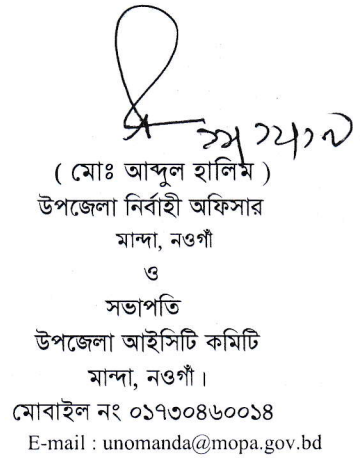 ( মোঃ আব্দুল হালিম )
উপজেলা নির্বাহী অফিসার
মান্দা, নওগাঁ
ও
সভাপতি
উপজেলা আইসিটি কমিটি
মান্দা, নওগাঁ ।
মোবাইল নং ০১৭৩০৪৬০০১৪
E-mail : unomanda@mopa.gov.bd